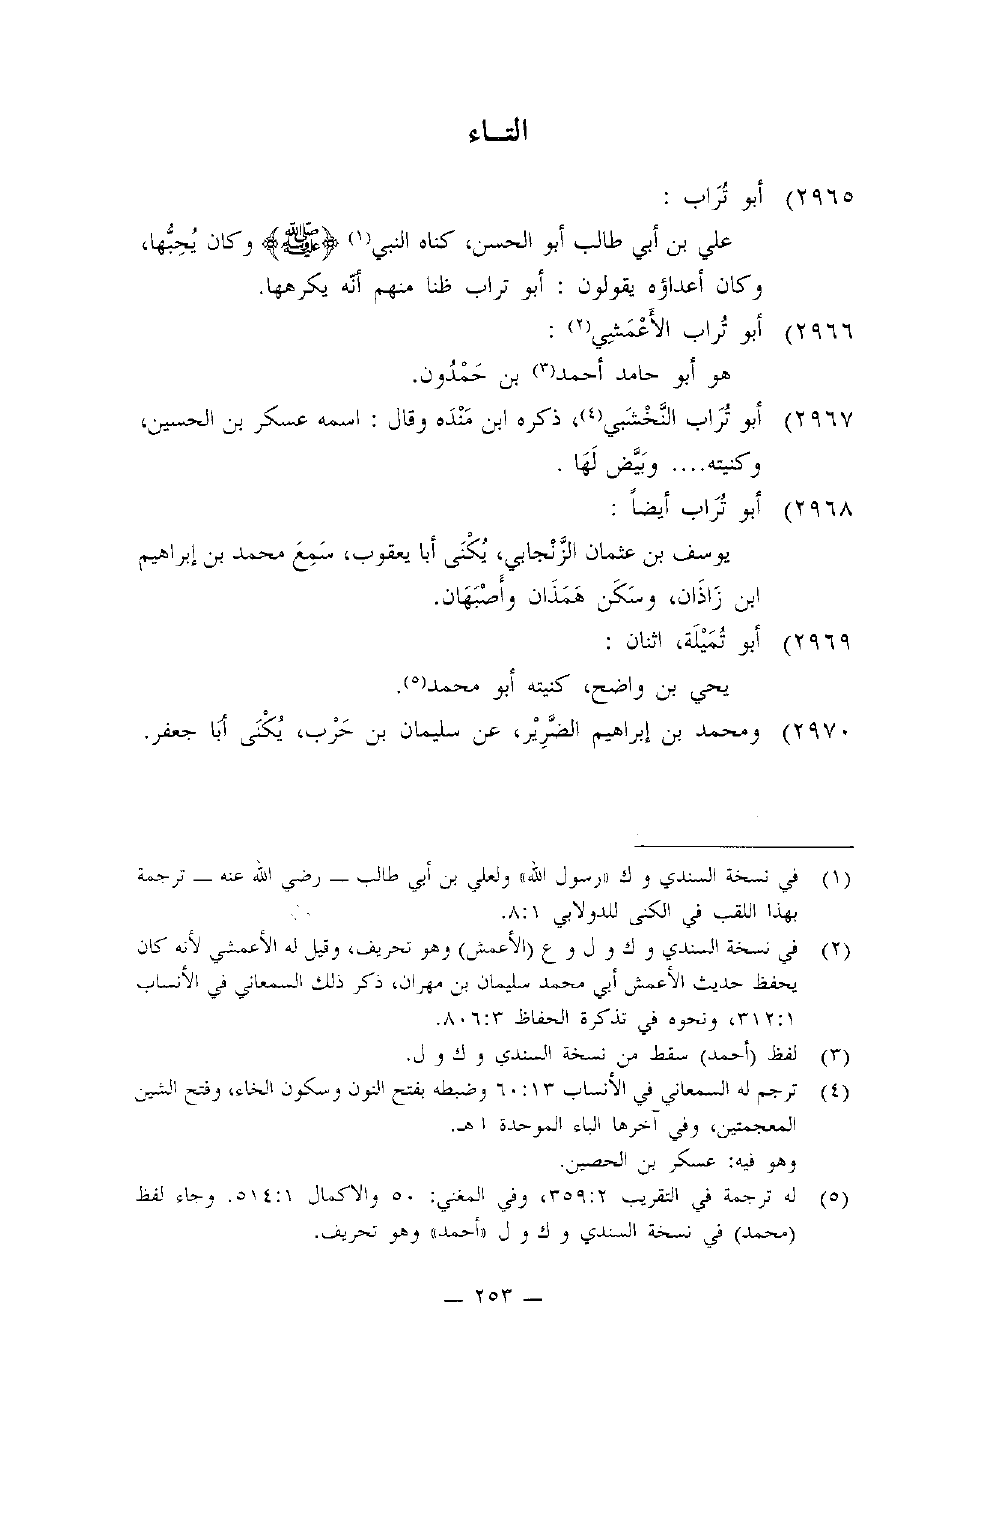 التــاء
٢٩٦٥) أبو تُرَاب :
علي بن أبي طالب أبو الحسن، كناه النبي(١) ﴿ﷺ﴾ وكان يُحِبُّها،
وكان أعداؤه يقولون : أبو تراب ظنا منهم أنّه يكرهها.
٢٩٦٦) أبو تُراب الأَعْمَشِي(٢) :
هو أبو حامد أحمد(٣) بن حَمْدُون.
٢٩٦٧) أبو تُرَاب النَّخْشَبي(٤)، ذكره ابن مَنْدَه وقال : اسمه عسكر بن الحسين،
وكنيته.... وبَيَّض لَهَا .
٢٩٦٨) أبو تُرَاب أيضاً :
يوسف بن عثمان الزَّنْجابي، يُكْنَى أبا يعقوب، سَمِعَ محمد بن إبراهيم
ابن زَاذَان، وسَكَن هَمَذَان وأَصْبَهَان.
٢٩٦٩) أبو تُمَيْلَة، اثنان :
يحي بن واضح، كنيته أبو محمد(٥).
٢٩٧٠) ومحمد بن إبراهيم الضَّرِيْر، عن سليمان بن حَرْب، يُكْنَى أبَا جعفر.
(١) في نسخة السندي و ك «رسول الله» ولعلي بن أبي طالب ــ رضي الله عنه ــ ترجمة
بهذا اللقب في الكنى للدولابي ٨:١.
(٢) في نسخة السندي و ك و ل و ع (الأعمش) وهو تحريف، وقيل له الأعمشي لأنه كان
يحفظ حديث الأعمش أبي محمد سليمان بن مهران، ذكر ذلك السمعاني في الأنساب
٣١٢:١، ونحوه في تذكرة الحفاظ ٨٠٦:٣.
(٣) لفظ (أحمد) سقط من نسخة السندي و ك و ل.
(٤) ترجم له السمعاني في الأنساب ٦٠:١٣ وضبطه بفتح النون وسكون الخاء، وفتح الشين
المعجمتين، وفي آخرها الباء الموحدة ١ هـ.
وهو فيه: عسكر بن الحصين.
(٥) له ترجمة في التقريب ٣٥٩:٢، وفي المغني: ٥٠ والاكمال ٥١٤:١. وجاء لفظ
(محمد) في نسخة السندي و ك و ل «أحمد» وهو تحريف.
ــ ٢٥٣ ــ